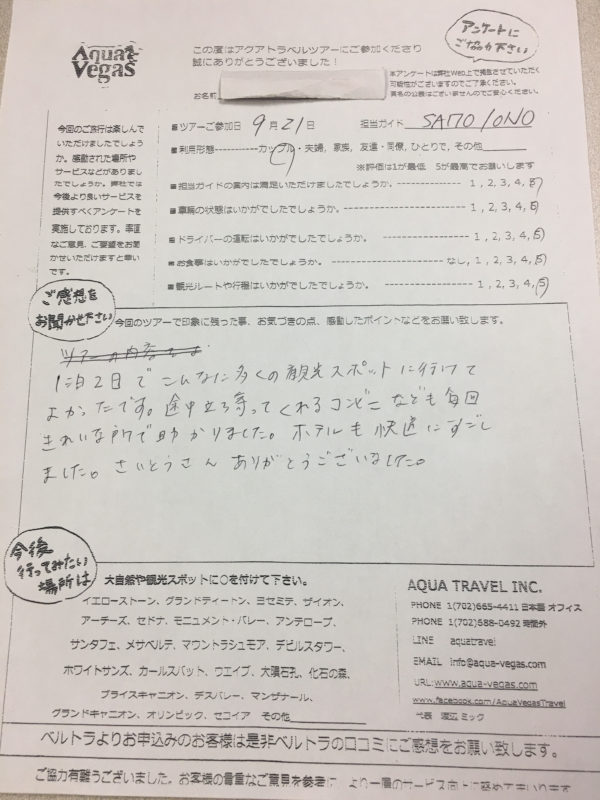 Aqua Vegas
この度はアクアトラベルツアーにご参加くださり
誠にありがとうございました！
アンケートに
ご協力下さい
本アンケートは弊社Web上で掲載させていただく
可能性がございますのでご了承ください。
実名の公表はございませんのでご安心ください。
お名前
今回のご旅行は楽しんで
いただけましたでしょう
か。感動された場所や
サービスなどがありまし
たでしょうか。弊社では
今後より良いサービスを
提供すべくアンケートを
実施しております。率直
なご意見、ご要望をお聞
かせいただけますと幸い
です。
■ツアーご参加日 9月21日 担当ガイド SAITO / ONO
■利用形態-----------カップル・夫婦, 家族, 友達・同僚, ひとりで, その他
※評価は1が最低、5が最高でお願いします
■担当ガイドの案内は満足いただけましたでしょうか。-------------- 1 , 2, 3, 4, 5
■車輌の状態はいかがでしたでしょうか。-------------- 1 , 2, 3, 4, 5
■ドライバーの運転はいかがでしたでしょうか。-------------- 1 , 2, 3, 4, 5
■お食事はいかがでしたでしょうか。-------------- なし, 1, 2, 3, 4, 5
■観光ルートや行程はいかがでしたでしょうか。-------------- 1, 2, 3, 4, 5
ご感想を
お聞かせ下さい
今回のツアーで印象に残った事、お気づきの点、感動したポイントなどをお願い致します。
ツアーの内容
1泊2日でこんなに多くの観光スポットに行けて
よかったです。途中立ち寄ってくれるコンビニなども毎回
きれいな所で助かりました。ホテルも快適にすごし
ました。さいとうさん ありがとうございました。
今後
行ってみたい
場所は
大自然や観光スポットに○を付けて下さい。
イエローストーン、グランドティートン、ヨセミテ、ザイオン、
アーチーズ、セドナ、モニュメント・バレー、アンテロープ、
サンタフェ、メサベルテ、マウントラシュモア、デビルスタワー、
ホワイトサンズ、カールスバット、ウエイブ、大隕石孔、化石の森、
ブライスキャニオン、デスバレー、マンザナール、
グランドキャニオン、オリンピック、セコイア その他
AQUA TRAVEL INC.
PHONE 1(702)665-4411 日本語 オフィス
PHONE 1(702)588-0492 時間外
LINE aquatravel
EMAIL info@aqua-vegas.com
URL:www.aqua-vegas.com
www.facebook.com/AquaVegasTravel
代表 渡辺 ミック
ベルトラよりお申込みのお客様は是非ベルトラの口コミにご感想をお願い致します。
ご協力有難うございました。お客様の貴重なご意見を参考に、より一層のサービス向上に努めてまいります